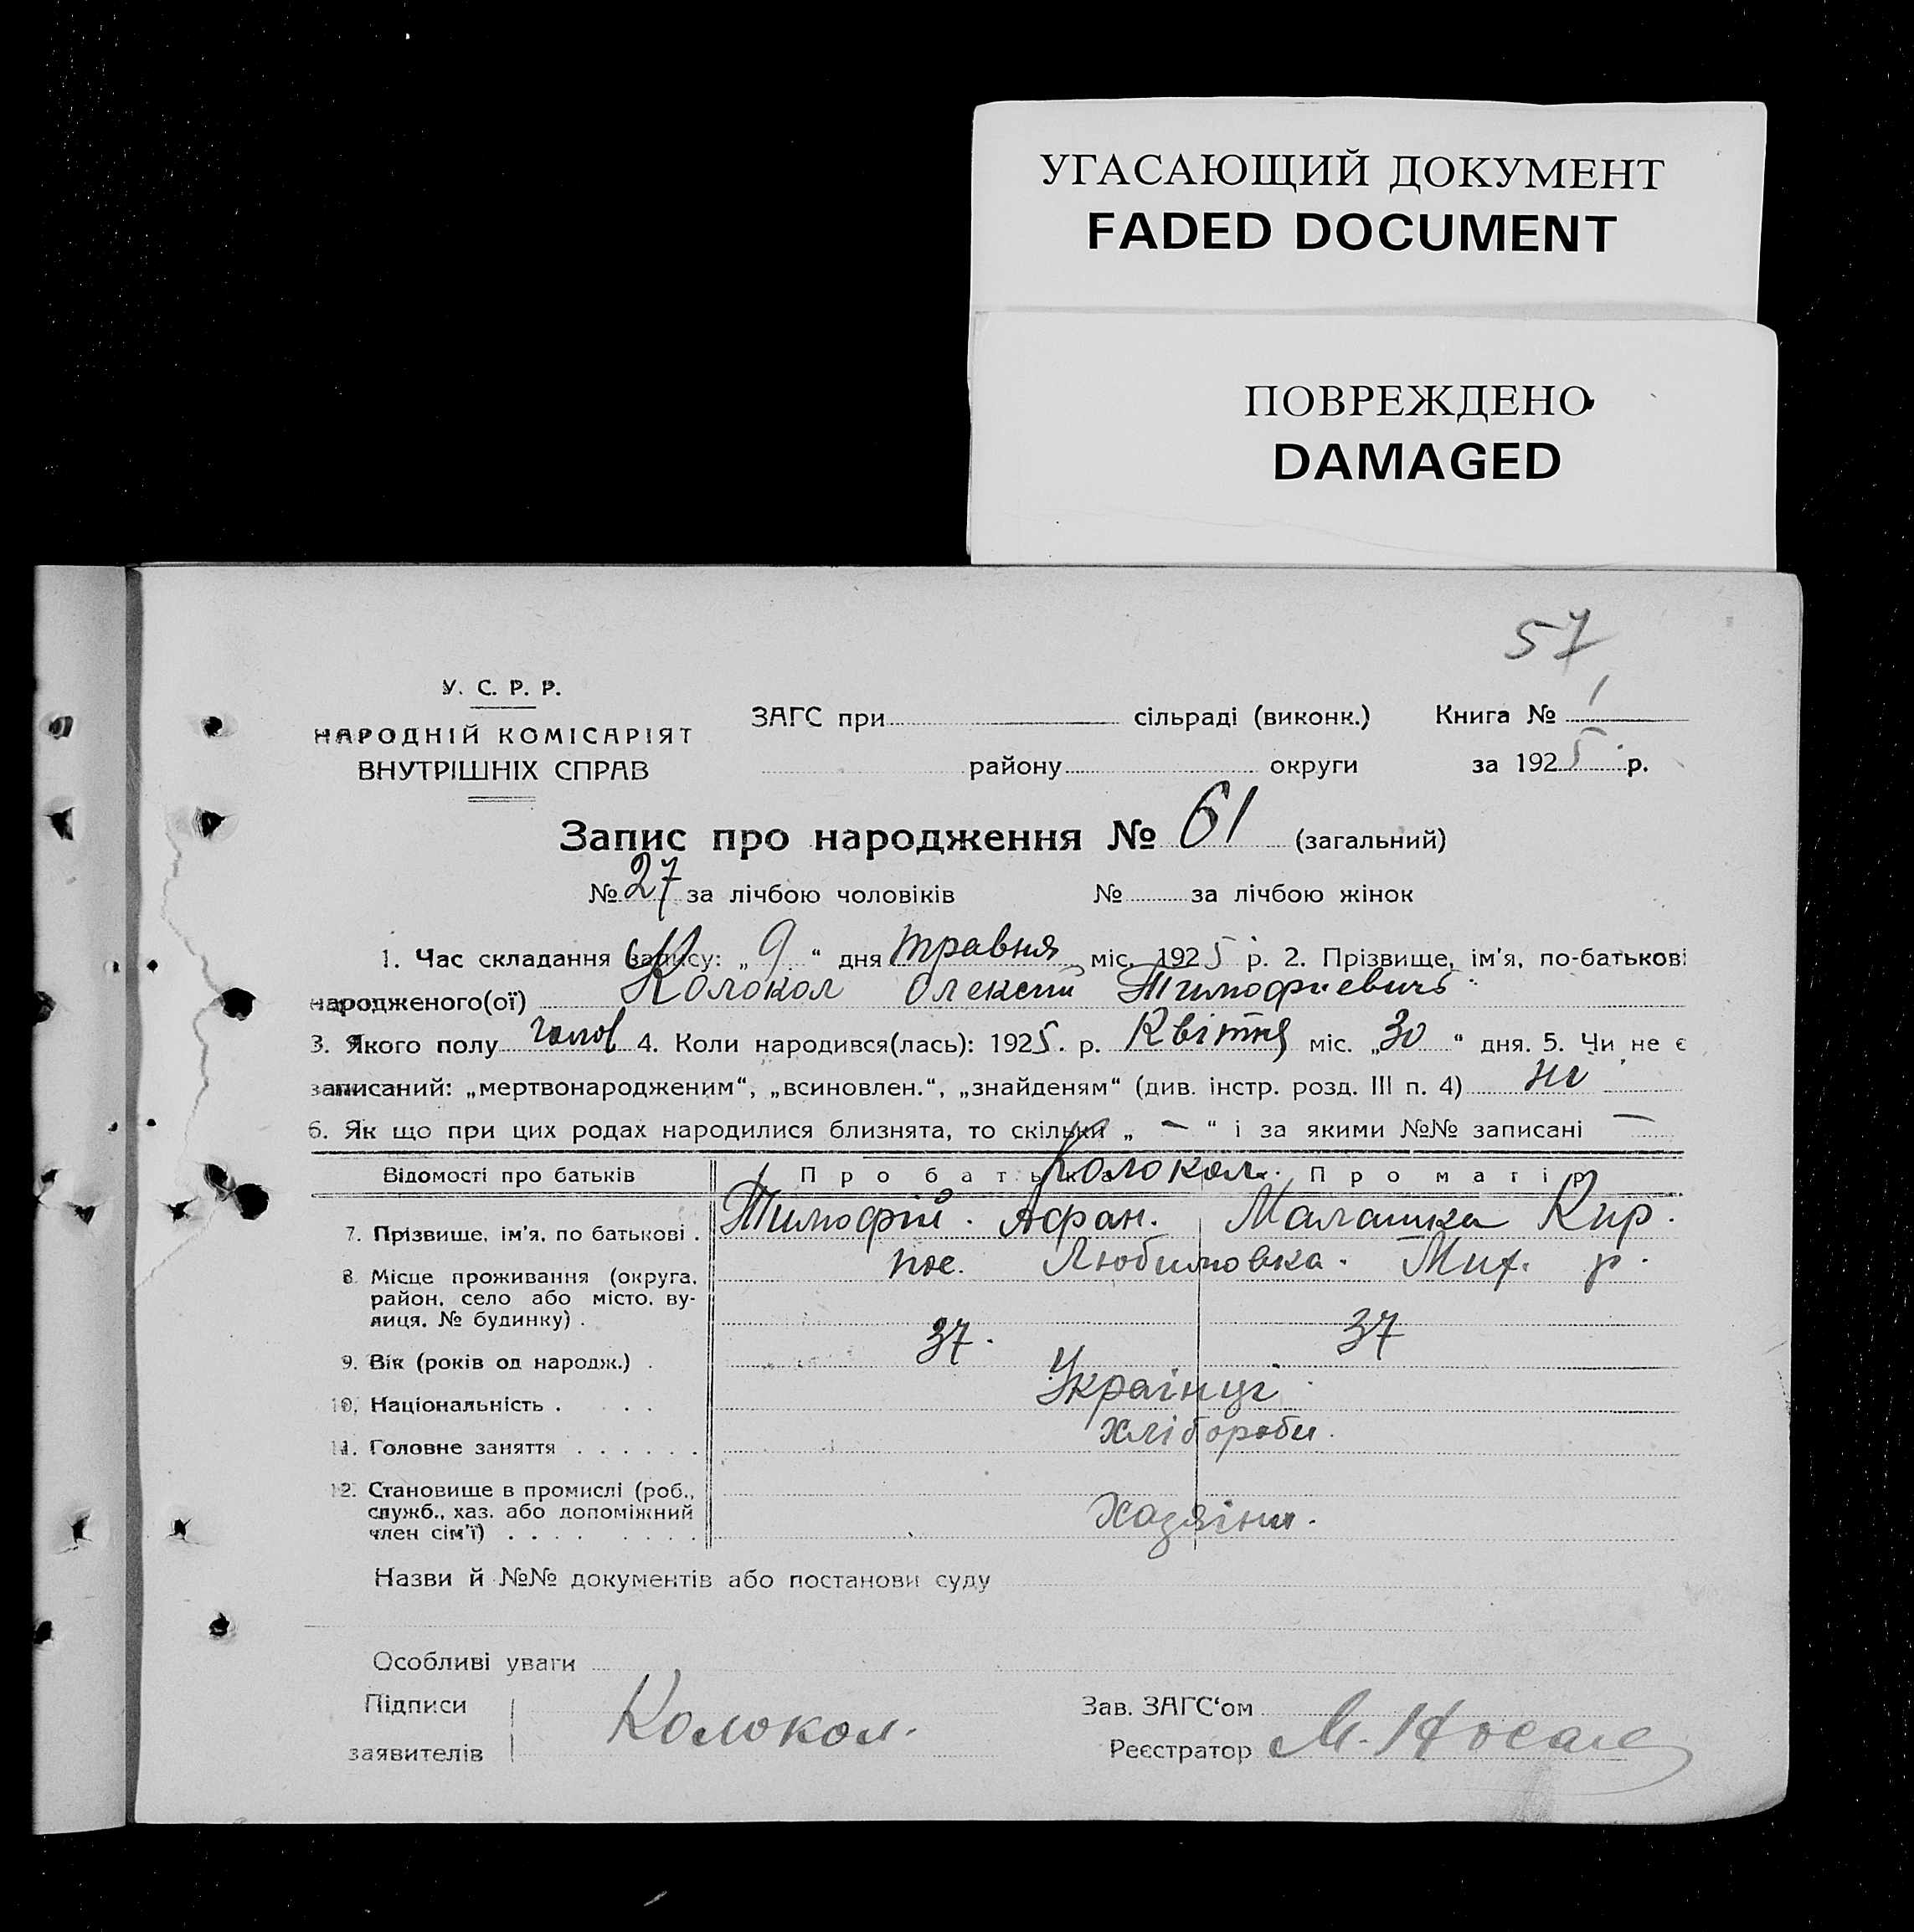 УГАСАЮЩИЙ ДОКУМЕНТ
FADED DOCUMENT
ПОВРЕЖДЕНО
DAMAGED
57
У. С. Р. Р.
НАРОДНІЙ КОМІСАРІЯТ
ВНУТРІШНІХ СПРАВ
ЗАГС при сільраді (виконк.) Книга № 1
району округи за 1925 р.
Запис про народження № 61 (загальний)
№ 27 за лічбою чоловіків № за лічбою жінок
1. Час складання запису: „ 9 “ дня травня міс. 1925 р. 2. Прізвище, ім'я, по-батькові
народженого(ої) Колокол Олексій Тимофиевичъ
3. Якого полу чолов 4. Коли народився(лась): 1925. р. Квітня міс. „30“ дня. 5. Чи не є
записаний: „мертвонародженим“, „всиновлен.“, „знайденям“ (див. інстр. розд. III п. 4) ні
6. Як що при цих родах народилися близнята, то скільки „ — “ і за якими №№ записані —
Відомості про батьків Про батька Про матір
Колокол.
7. Прізвище, ім'я, по батькові . Тимофій. Афан. Малашка Кир.
8. Місце проживання (округа, пос. Любимовка. Мих. р.
район, село або місто, ву-
лиця, № будинку) .
9. Вік (років од народж.) . 37. 37
10. Національність . . . . Українці.
11. Головне заняття . . . . . . хлібороби.
12. Становище в промислі (роб.,
служб., хаз. або допоміжний хазяїни.
член сім'ї) . . . . . . . .
Назви й №№ документів або постанови суду
Особливі уваги
Підписи
заявителів Колокол.
Зав. ЗАГС'ом
Реєстратор М. Носаль